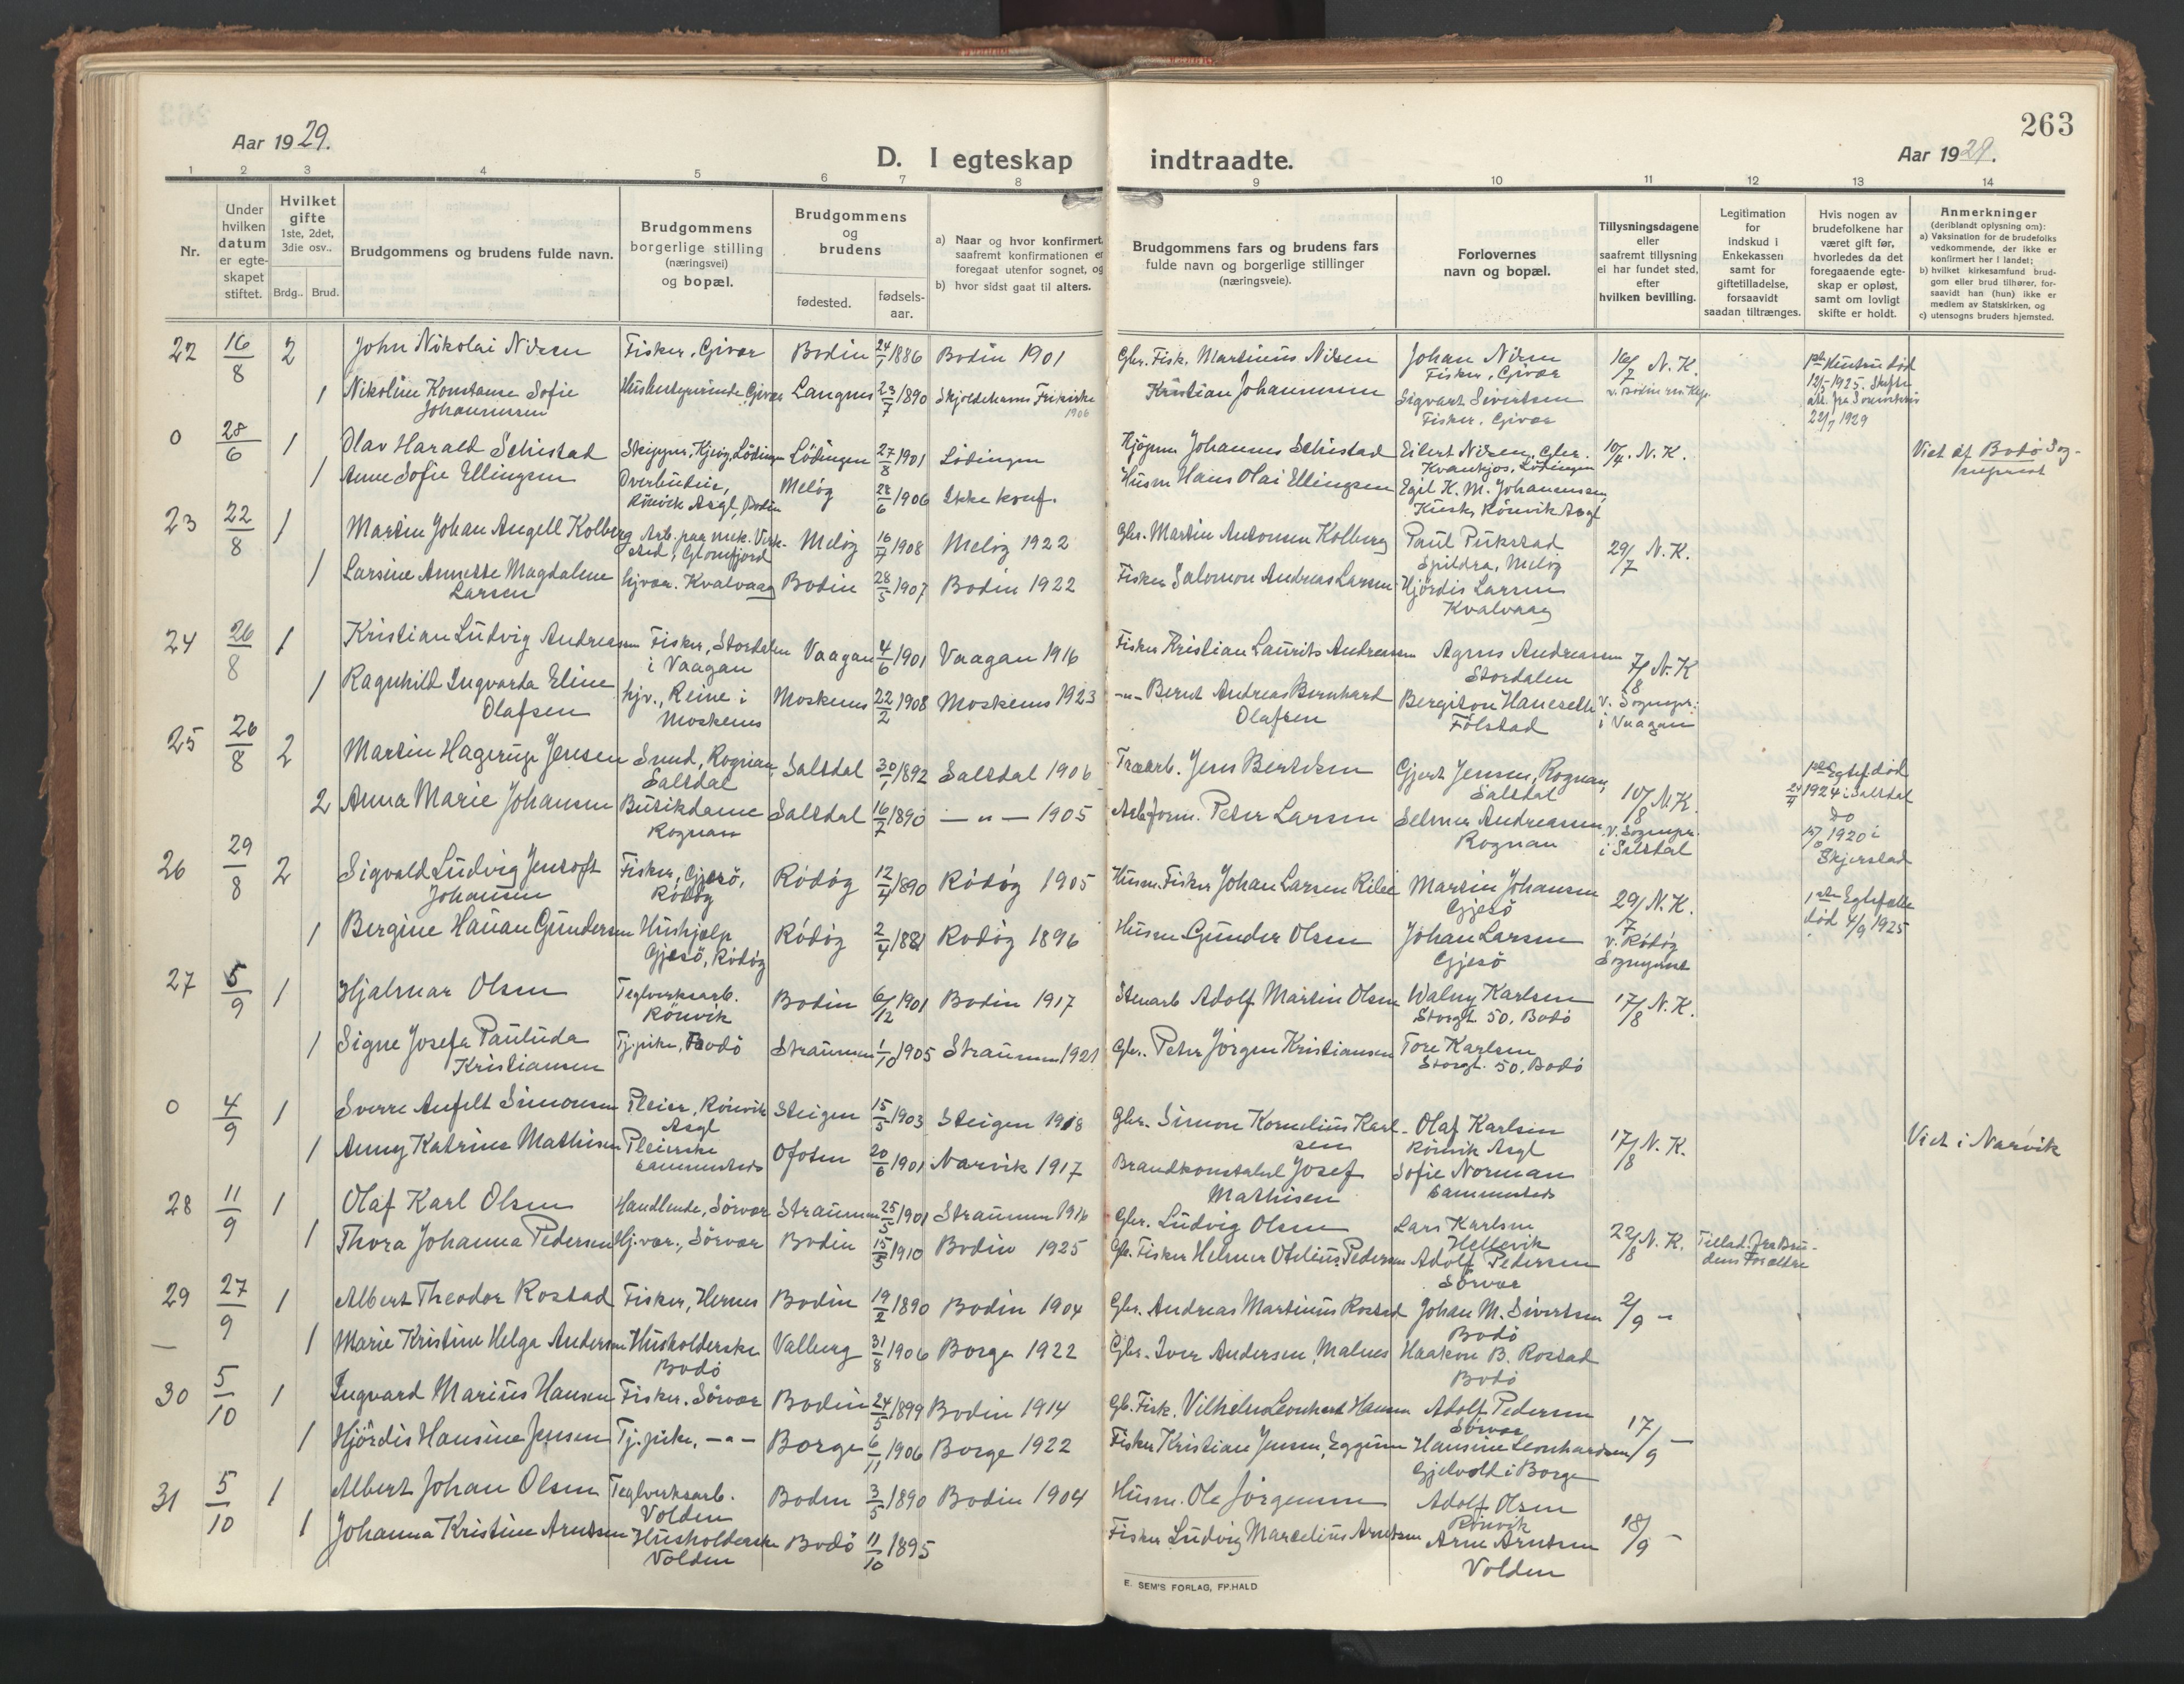 263
Aar 1929.
D. I egteskap indtraadte.
Aar 1929.
1 2 3 4 5 6 7 8 9 10 11 12 13 14
Nr.
Under hvilken datum er egteskapet stiftet.
Hvilket gifte 1ste, 2det, 3die osv..
Brdg.. Brud.
Brudgommens og brudens fulde navn.
Brudgommens borgerlige stilling (næringsvei) og bopæl.
Brudgommens og brudens
fødested. fødsels-aar.
a) Naar og hvor konfirmert, saafremt konfirmationen er foregaat utenfor sognet, og
b) hvor sidst gaat til alters.
Brudgommens fars og brudens fars fulde navn og borgerlige stillinger (næringsveie).
Forlovernes navn og bopæl.
Tillysningsdagene eller saafremt tillysning ei har fundet sted, efter hvilken bevilling.
Legitimation for indskud i Enkekassen samt for giftetilladelse, forsaavidt saadan tiltrænges.
Hvis nogen av brudefolkene har været gift før, hvorledes da det foregaaende egteskap er opløst, samt om lovligt skifte er holdt.
Anmerkninger (deriblandt oplysning om):
a) Vaksination for de brudefolks vedkommende, der ikke er konfirmert her i landet;
b) hvilket kirkesamfund brudgom eller brud tilhører, forsaavidt han (hun) ikke er medlem av Statskirken, og
c) utensogns bruders hjemsted.
22 16/8 2 John Nikolai Nilsen Fisker, Givær Bodin 24/1 1886 Bodin 1901 Gbr. Fisk. Martinus Nilsen Johan Nilsen Fisker, Givær 16/7 N.K. 1ste Hustru død
1 Nikoline Konstanse Sofie Johannessen Givær Langnes 23/7 1890 Skjoldehavns Frikirke 1906 Kristian Johannessen Sigvart Sivertsen Fisker, Givær 12/5 1925. Skifte
22/7 1929
0 28/6 1 Olav Harald Schistad Skipper, Kjeøy, Lödingen Lödingen 27/8 1901 Lödingen Kjöpm Johannes Schistad Eilert Nilsen, Gbr. Kvantjos, Lödingen 10/4. N.K. Viet af Bodö Sogneprest
1 Anne Sofie Ellingsen Rönvik Asgl, Bodin Melöy 28/6 1906 Ikke konf. Husm Hans Olai Ellingsen Egil K. M. Johannessen, Kusk, Rönvik Asgl
23 22/8 1 Martin Johan Angell Kolberg Arb. paa mek. Verksted, Glomfjord Melöy 16/7 1908 Melöy 1922 Gbr. Martin Antonsen Kolberg Paul Pukstad Spildra, Melöy 29/7 N.K.
1 Larsine Annette Magdalene Larsen hjvær. Kvalvaag Bodin 28/5 1907 Bodin 1922 Fisker Salomon Andreas Larsen Hjördis Larsen Kvalvaag
24 26/8 1 Kristian Ludvig Andreassen Fisker, Stordalen i Vaagan Vaagan 4/6 1901 Vaagan 1916 Fisker Kristian Laurits Andreassen Agnes Andreassen Stordalen 7/8 N.K
1 Ragnhild Ingvarda Eline Olafsen hjv., Reine i Moskenes Moskenes 22/2 1908 Moskenes 1923 -"- Bernt Andreas Bernhard Olafsen Fölstad v. Sognepr. i Vaagan
25 26/8 2 Martin Hagerup Jensen Smed, Rognan Saltdal Saltdal 30/1 1892 Saltdal 1906 Træarb. Jens Bertdsen Gjert Jensen, Rognan, Saltdal 10/8 N.K. 1ste Egtef død 24/4 1924 i Saltdal
2 Anna Marie Johansen Butikdame Rognan Saltdal 16/7 1890 - " - 1905 Arb.form. Peter Larsen Selmer Andreassen Rognan v. Sognepr. i Saltdal do 1920 i Skjerstad
26 29/8 2 Sigvald Ludvig Jentoft Johansen Fisker, Gjesö, Rödöy Rödöy 12/4 1890 Rödöy 1905 Husm. Fisker Johan Larsen Martin Johansen Gjesö 29/7 N.K. 1ste Egtefælle død 4/9 1925
1 Bergine Hanan Gundersen Hushjælp Gjesö, Rödöy Rödöy 2/4 1881 Rödöy 1896 Husm Gunder Olsen Johan Larsen Gjesö v. Rödöy
27 5/9 1 Hjalmar Olsen Teglverksarb. Rönvik Bodin 6/12 1901 Bodin 1917 Stenarb Adolf Martin Olsen Walny Karlsen Storgt. 50, Bodö 17/8 N.K.
1 Signe Josefa Pauluda Kristiansen Tj.pike, Bodö Straumen 1/10 1905 Straumen 1921 Gbr. Peter Jörgen Kristiansen Tore Karlsen Storgt. 50, Bodö
0 4/9 1 Sverre Anfelt Simonsen Pleier, Rönvik Asgl Steigen 15/5 1903 Steigen 1918 Gbr. Simon Kornelius Karlsen Olaf Karlsen Rönvik Asgl 17/8 N.K. Viet i Narvik
1 Anny Katrine Mathisen Pleierske sammesteds Ofoten 20/6 1901 Narvik 1917 Brandkonstabel Josef Mathisen Sofie Norman sammesteds
28 11/9 1 Olaf Karl Olsen Handlende, Sörvær Straumen 25/5 1901 Straumen 1916 Gbr. Ludvig Olsen Lars Karlsen Hellevik 22/8 N.K. Tillad. fra Brudens Forældre
1 Thora Johanna Pedersen Hj.vær., Sörvær Bodin 15/5 1910 Bodin 1925 Gb. Fisker Helmer Otelius Pedersen Adolf Pedersen Sörvær
29 27/9 1 Albert Theodor Rostad Fisker, Hernes Bodin 19/2 1890 Bodin 1904 Gbr. Andreas Martinius Rostad Johan M. Sivertsen Bodö 2/9 -"
— 1 Marie Kristine Helga Andersen Husholderske Bodö Valberg 31/8 1906 Borge 1922 Gbr. Iver Andersen, Malnes Haakon B. Rostad Bodö
30 5/10 1 Ingvard Marius Hansen Fisker. Sörvær Bodin 24/5 1899 Bodin 1914 Gb. Fisk. Vilhelm Leonhard Hansen Adolf Pedersen Sörvær 17/9 —
1 Hjördis Hansine Jensen Tj.pike, -"- Borge 6/11 1906 Borge 1922 Fisker Kristian Jensen, Eggum Hansine Leonhardsen Gjelvold i Borge
31 5/10 1 Albert Johan Olsen Teglverksarb. Volden Bodin 3/5 1890 Bodin 1904 Husm. Ole Jörgensen Adolf Olsen Rönvik 18/9 -
1 Johanna Kristine Arntsen Husholderske Volden Bodö 11/10 1895 Fisker Ludvig Marselius Arntsen Arne Arntsen Volden
E. SEM'S FORLAG, FP.HALD